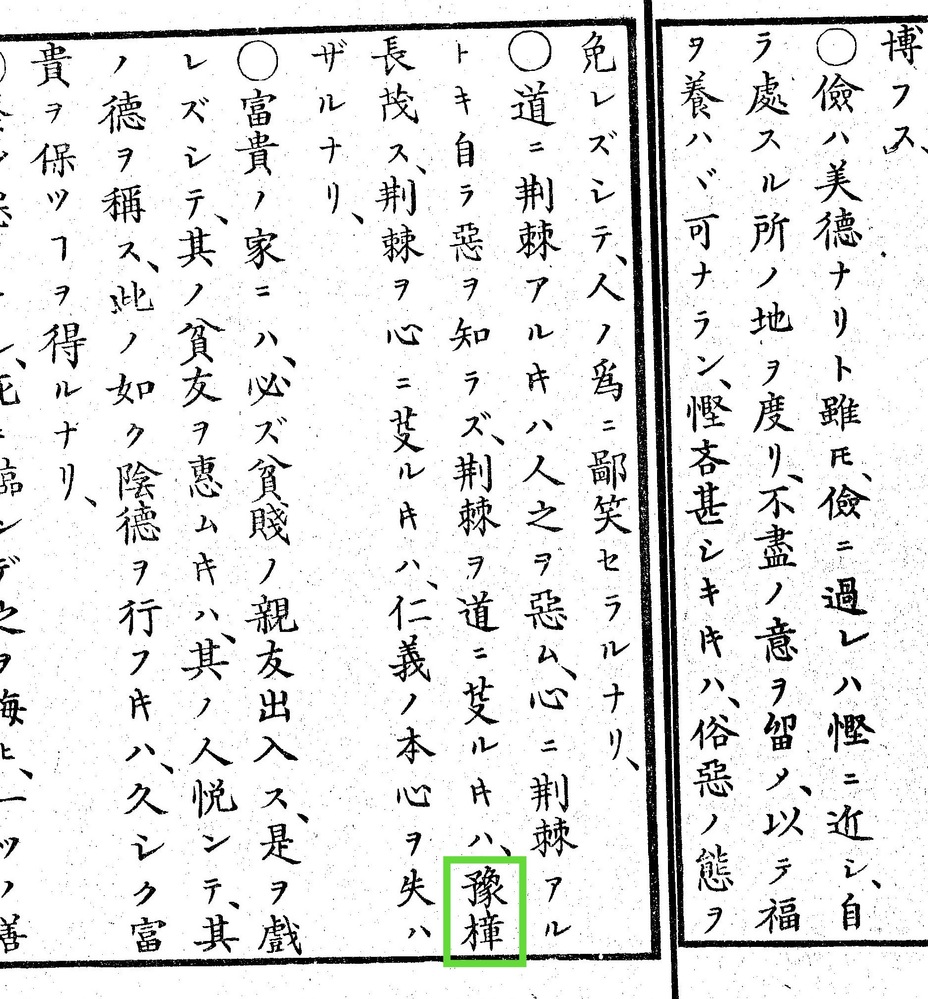 博フス、
〇儉ハ美德ナリト雖𪜈、儉ニ過レハ慳ニ近シ、自
ラ處スル所ノ地ヲ度リ、不盡ノ意ヲ留メ、以テ福
ヲ養ハヾ可ナラン、慳吝甚シキトキハ、俗惡ノ態ヲ
免レズシテ、人ノ爲ニ鄙笑セラルナリ、
〇道ニ荊棘アルトキハ人之ヲ惡ム、心ニ荊棘アル
トキ自ラ惡ヲ知ラズ、荊棘ヲ道ニ芟ルトキハ、豫樟
長茂ス、荊棘ヲ心ニ芟ルトキハ、仁義ノ本心ヲ失ハ
ザルナリ、
〇富貴ノ家ニハ、必ズ貧賤ノ親友出入ス、是ヲ戲
レズシテ、其ノ貧友ヲ惠ムトキハ、其ノ人悦ンテ、其
ノ德ヲ稱ス、此ノ如ク陰德ヲ行フトキハ、久シク富
貴ヲ保ツヿヲ得ルナリ、
死ニ臨ンデ之ヲ悔ヒ、一ツノ善